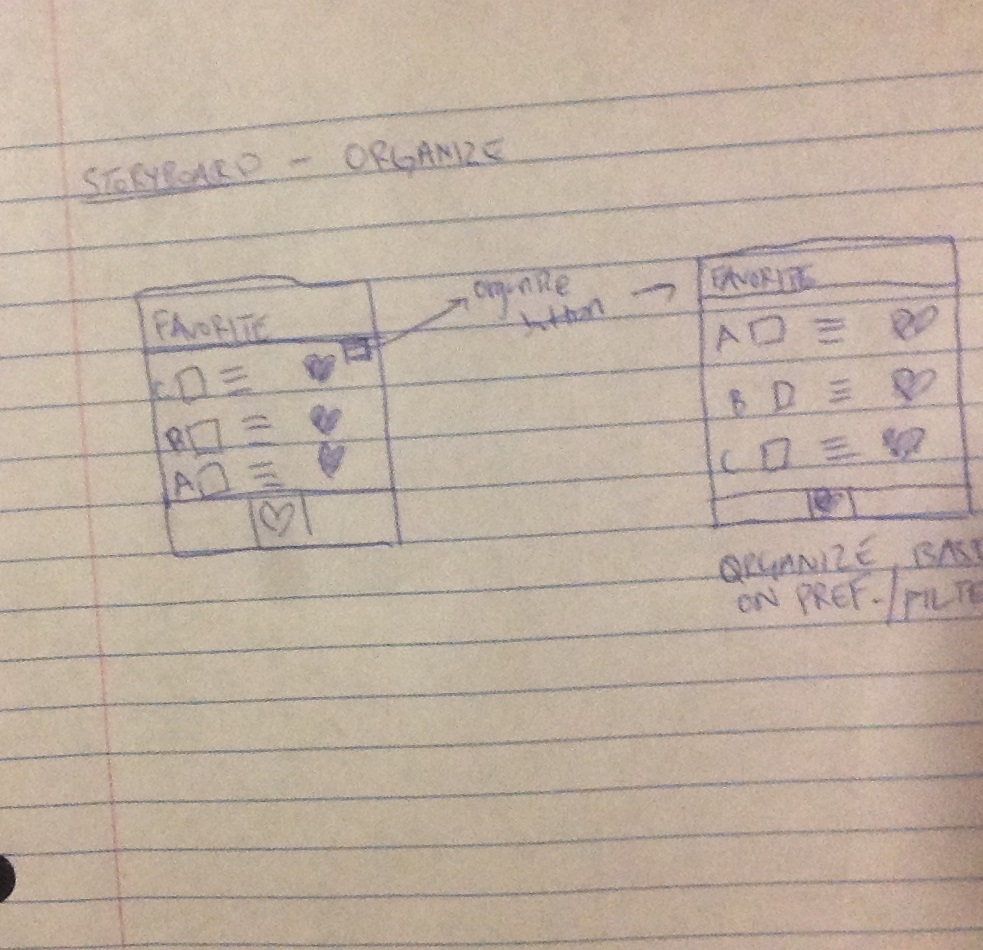 STORYBOARD - ORGANIZE
FAVORITE
C
B
A
organize
button
FAVORITE
A
B
C
ORGANIZE BASE
ON PREF./FILTE